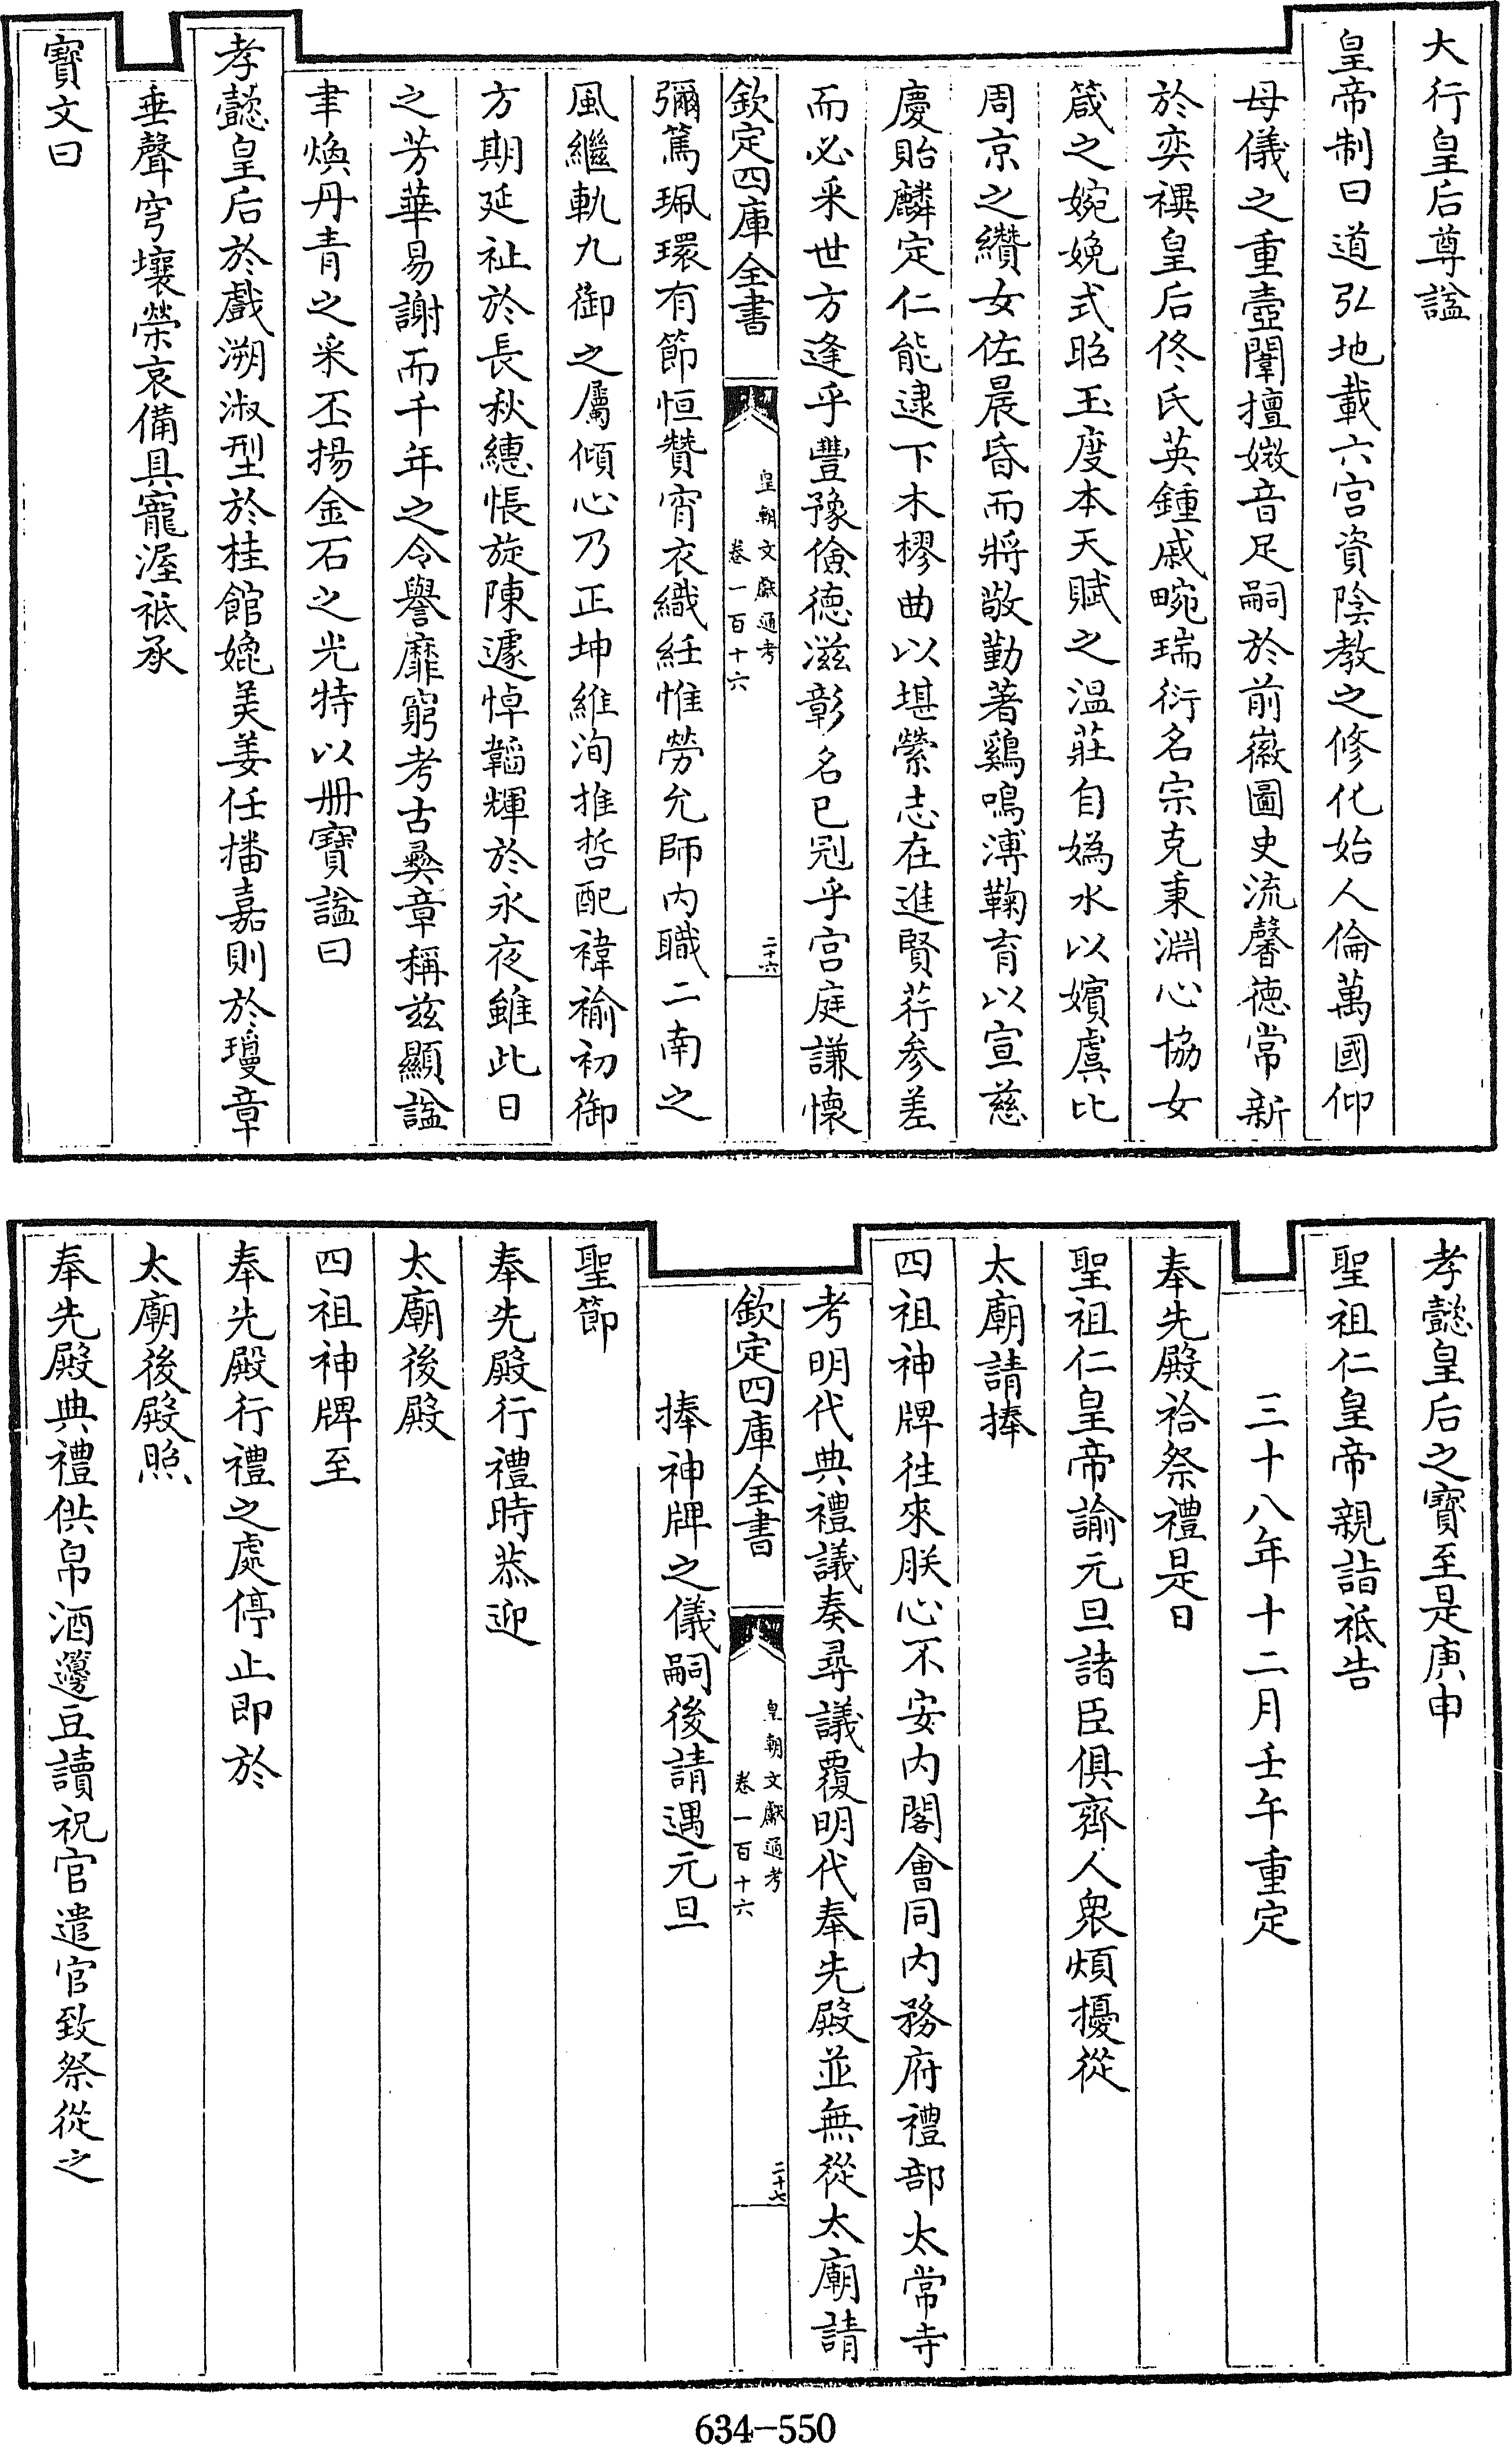 大行皇后尊諡
皇帝制曰道弘地載六宫資陰教之修化始人倫萬國仰
母儀之重壺闈擅媺音足嗣於前徽圖史流馨徳常新
於奕禩皇后佟氏英鍾戚畹瑞衍名宗克秉淵心協女
箴之婉娩式昭玉度本天賦之温莊自嬀水以嬪虞比
周京之纘女佐晨昏而將敬勤著鷄鳴溥鞠育以宣慈
慶貽麟定仁能逮下木樛曲以堪縈志在進賢荇參差
而必采世方逢乎豐豫儉徳滋彰名已冠乎宫庭謙懷
欽定四庫全書
皇朝文獻通考
卷一百十六
二十六
彌篤珮環有節恒贊宵衣織絍惟勞允師内職二南之
風繼軌九御之屬傾心乃正坤維洵推哲配褘褕初御
方期延祉於長秋繐悵旋陳遽悼韜輝於永夜雖此日
之芳華易謝而千年之令譽靡窮考古彜章稱兹顯諡
聿煥丹青之采丕揚金石之光特以册寶諡曰
孝懿皇后於戲溯淑型於桂館媲美姜任播嘉則於瓊章
垂聲穹壤榮哀備具寵渥祇承
寶文曰
孝懿皇后之寶至是庚申
聖祖仁皇帝親詣祗告
三十八年十二月壬午重定
奉先殿祫祭禮是日
聖祖仁皇帝諭元旦諸臣俱齊人衆煩擾從
太廟請捧
四祖神牌往來朕心不安内閣會同内務府禮部太常寺
考明代典禮議奏尋議覆明代奉先殿並無從太廟請
欽定四庫全書
皇朝文獻通考
卷一百十六
二十七
捧神牌之儀嗣後請遇元旦
聖節
奉先殿行禮時恭迎
太廟後殿
四祖神牌至
奉先殿行禮之處停止即於
太廟後殿照
奉先殿典禮供帛酒籩豆讀祝官遣官致祭從之
634-550